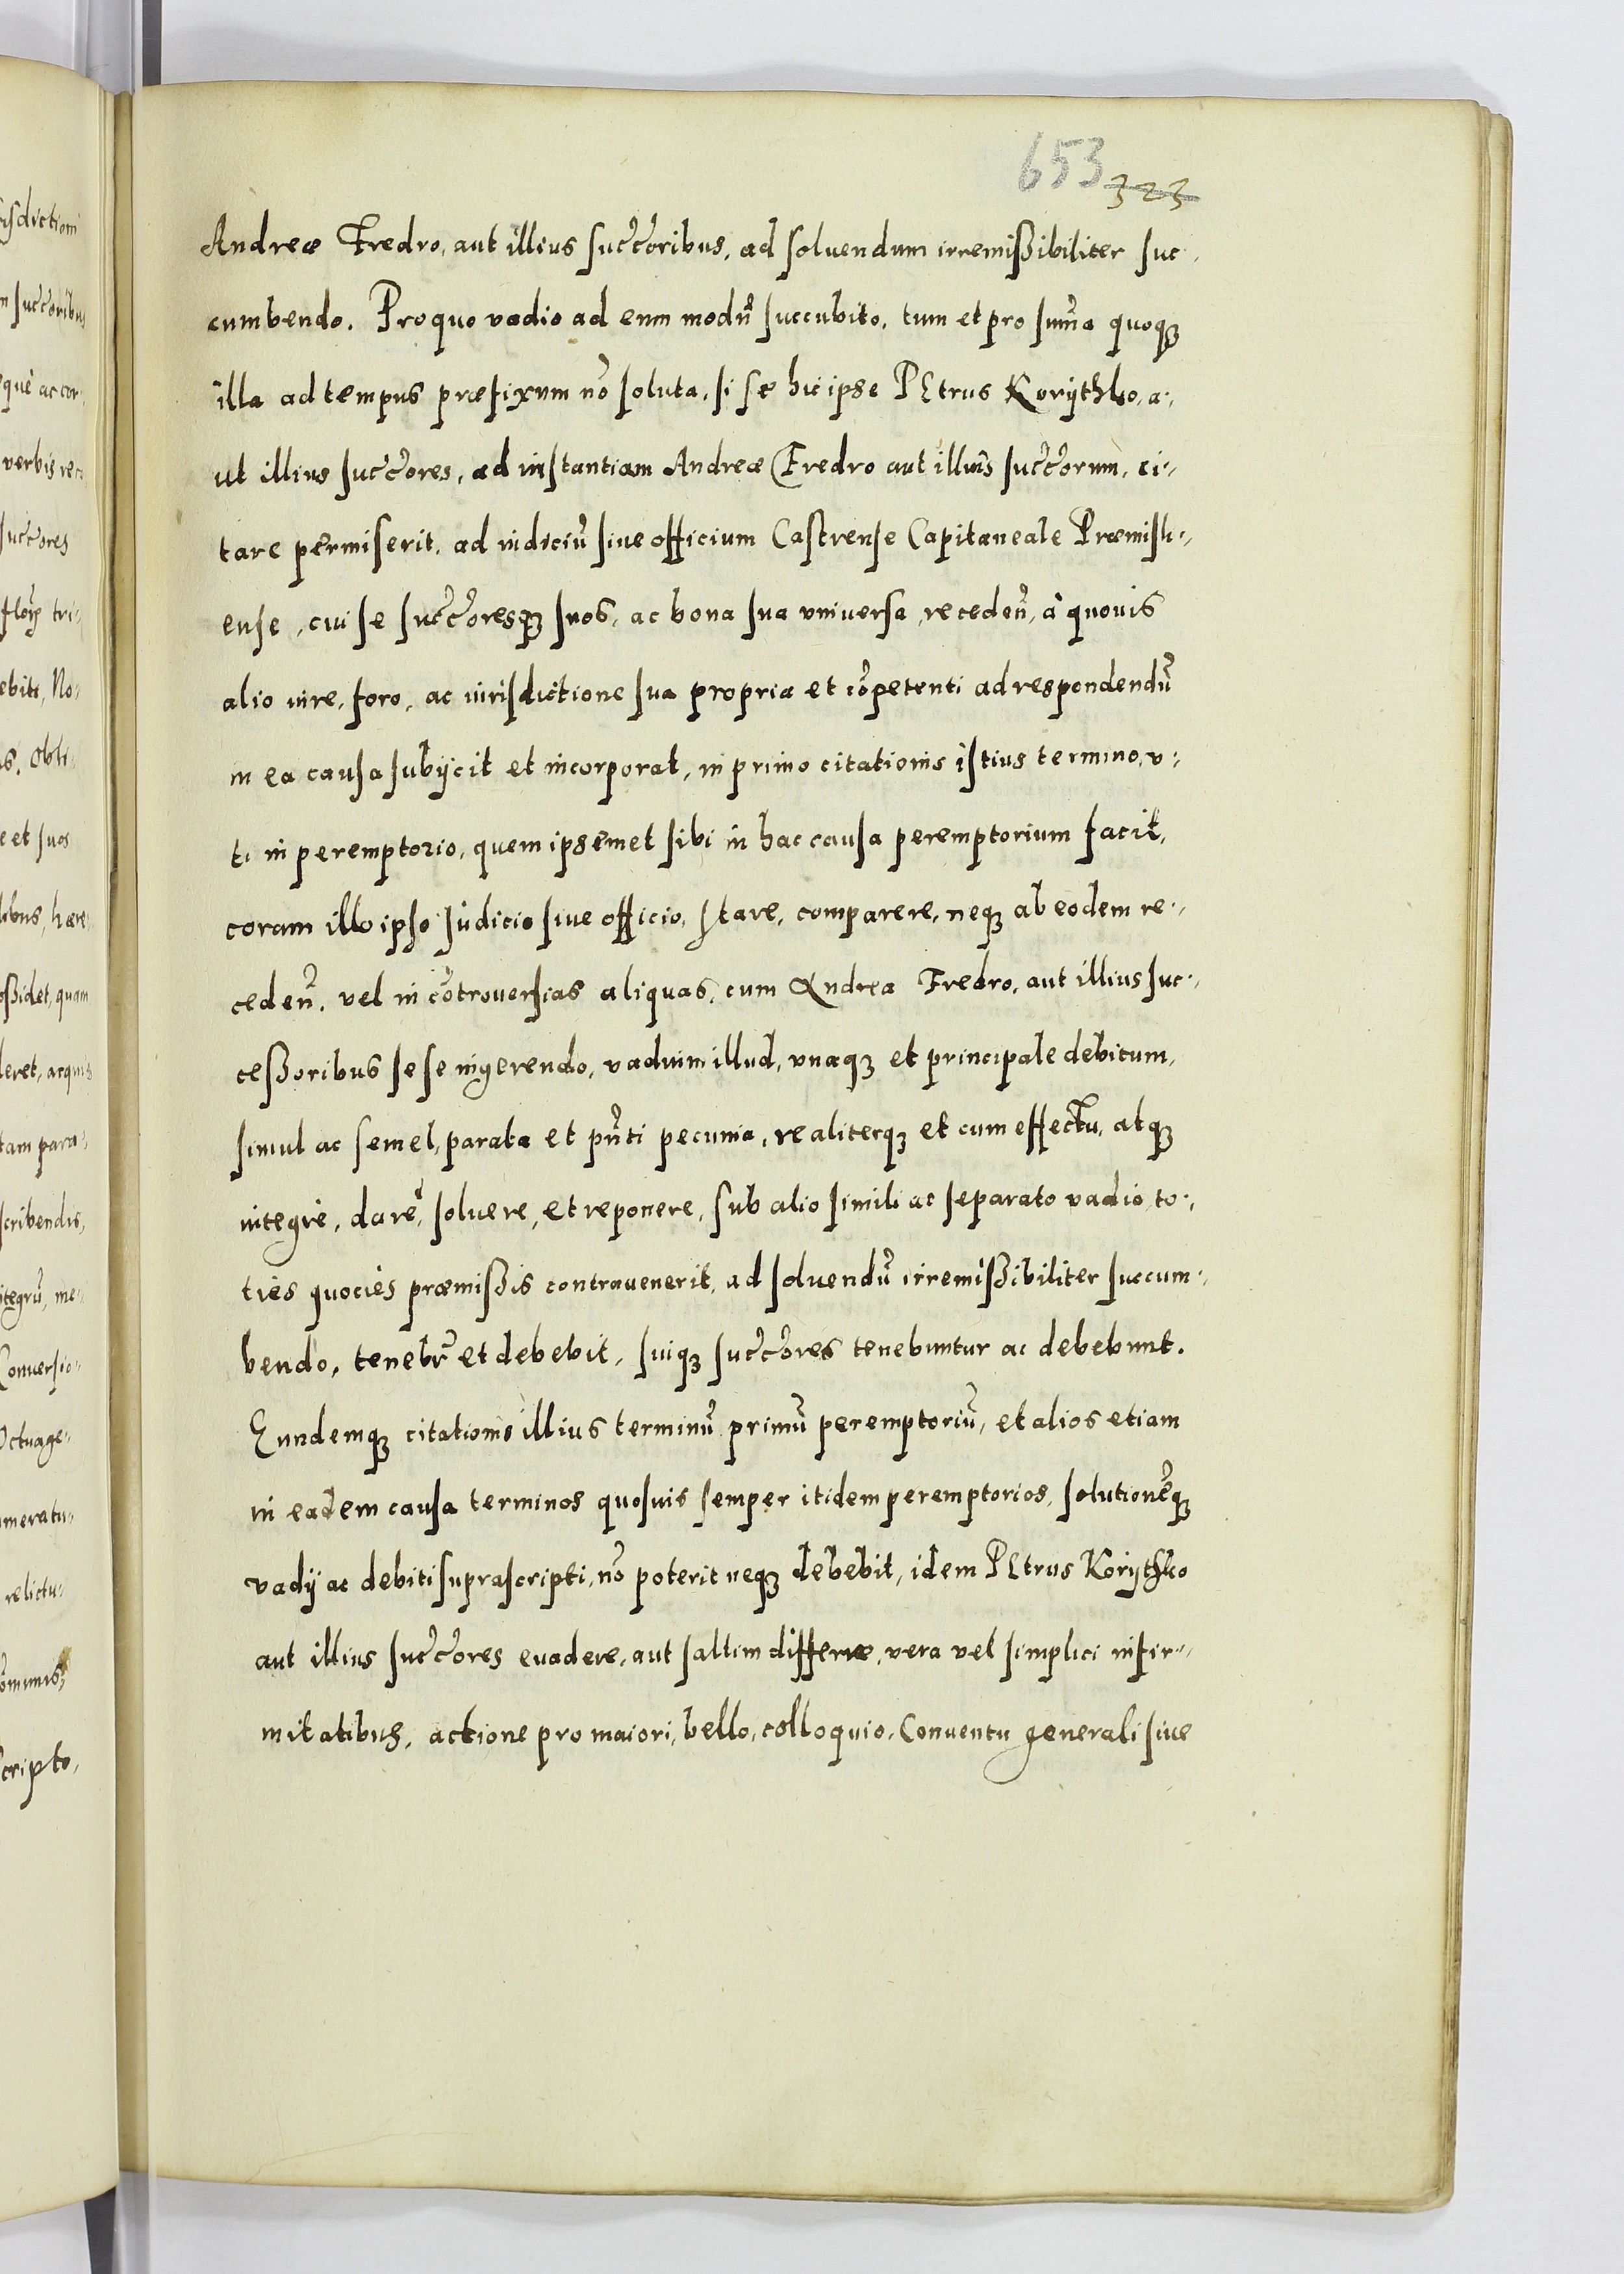 653 323
Andreæ Fredro, aut illius succ̃toribus, ad soluendum irremißibiliter suc-
cumbendo. Pro quo vadio ad eum modũ succubito, tum et pro sum̃a quoqꝫ
illa ad tempus præfixum nõ soluta, si se hic ipse PEtrus Korÿthko, a-
ut illius succ̃tores, ad instantiam Andreæ Fredro aut illius succ̃torum, ci-
tare permiserit, ad iudiciũ siue officium Castrense Capitaneale Præmisli-
ense, cui se succ̃toresqꝫ suos, ac bona sua vniuersa, recedeñ, à quouis
alio iure, foro, ac iurisdictione sua propria et cõpetenti ad respondendũ
in ea causa subÿcit et incorporat, in primo citationis istius termino, v-
ti in peremptorio, quem ipsemet sibi in hac causa peremptorium facit,
coram illo ipso Judicio siue officio, stare, comparere, neqꝫ ab eodem re-
cedeñ. vel in cõtrouersias aliquas, cum Andrea Fredro, aut illius suc-
ceßoribus sese ingerendo, vadium illud, vnaqꝫ et principale debitum,
simul ac semel, parata et pñti pecunia, realiterqꝫ et cum effectu, atqꝫ
integrè, dare, soluere, et reponere, sub alio simili ac separato vadio, to-
ties quocies præmißis contrauenerit, ad soluendũ irremißibiliter succum-
bendo, tenebr̃ et debebit, suiqꝫ succ̃tores tenebuntur ac debebunt.
Eundemqꝫ citationis illius terminũ primũ peremptoriũ, et alios etiam
in eadem causa terminos quosuis semper itidem peremptorios, solutionẽqꝫ
vadÿ ac debiti suprascripti, nõ poterit neqꝫ debebit, idem PEtrus Korÿthko
aut illius succ̃tores euadere, aut saltim differre, vera vel simplici infir-
mitatibus, actione pro maiori, bello, colloquio, Conuentu generali siue